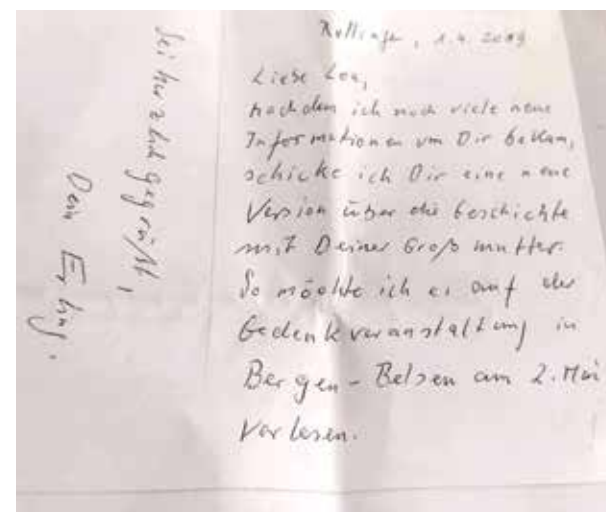 1.4. 2019
Liebe Lea,
nachdem ich noch viele neue
Informationen von Dir bekam,
schicke ich Dir eine neue
Version über die Geschichte
mit Deiner Großmutter.
So möchte ich es auf der
Gedenkveranstaltung in
Bergen-Belsen am 2. Mai
vorlesen.
Sei herzlich gegrüßt,
Dein